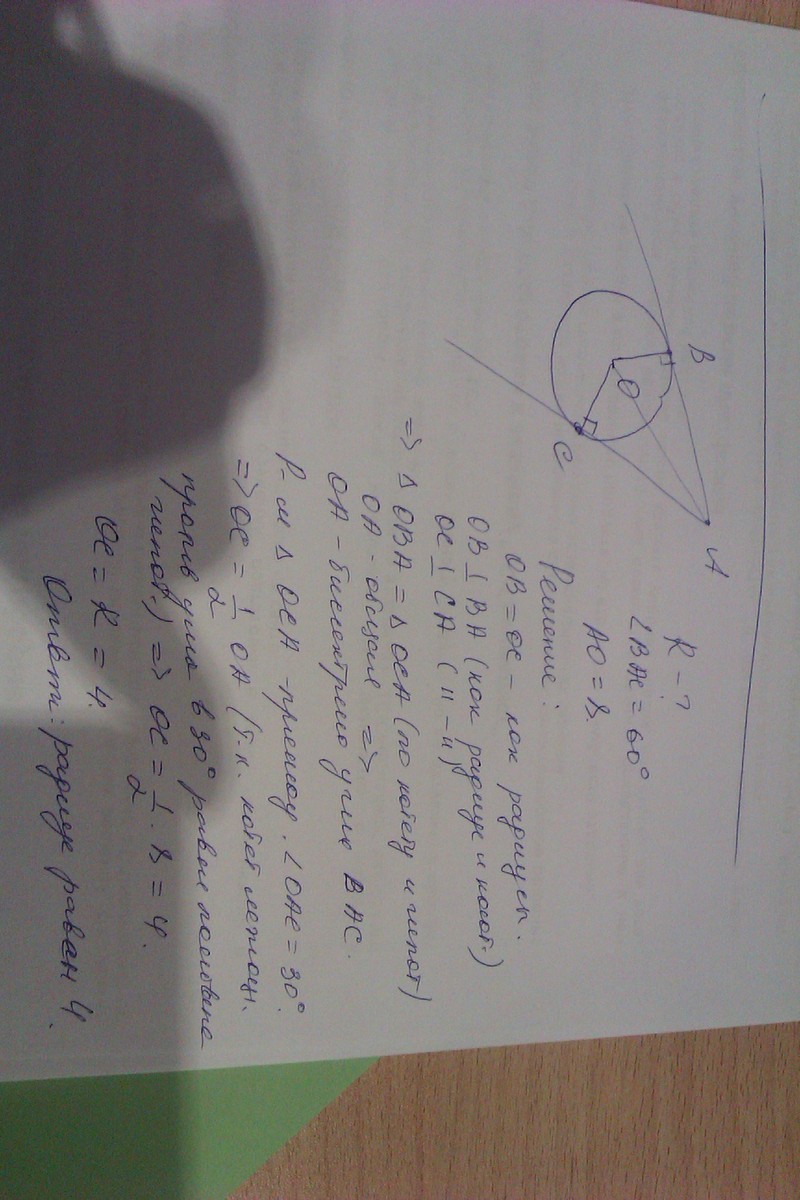 A
B
O
C
R - ?
∠BAC = 60°
AO = 8.
Решение:
OB = OC - как радиусы.
OB ⊥ BA (как радиус и касат.)
OC ⊥ CA ( " - ")
=> Δ OBA = Δ OCA (по катету и гипот)
OA - общая =>
OA - биссектриса угла BAC.
Р-м Δ OCA - прямоу. ∠OAC = 30°.
=> OC = 1/2 OA (т.к. катет лежащ.
против угла в 30° равен половине
гипот.) => OC = 1/2 · 8 = 4.
OC = R = 4.
Ответ: радиус равен 4.